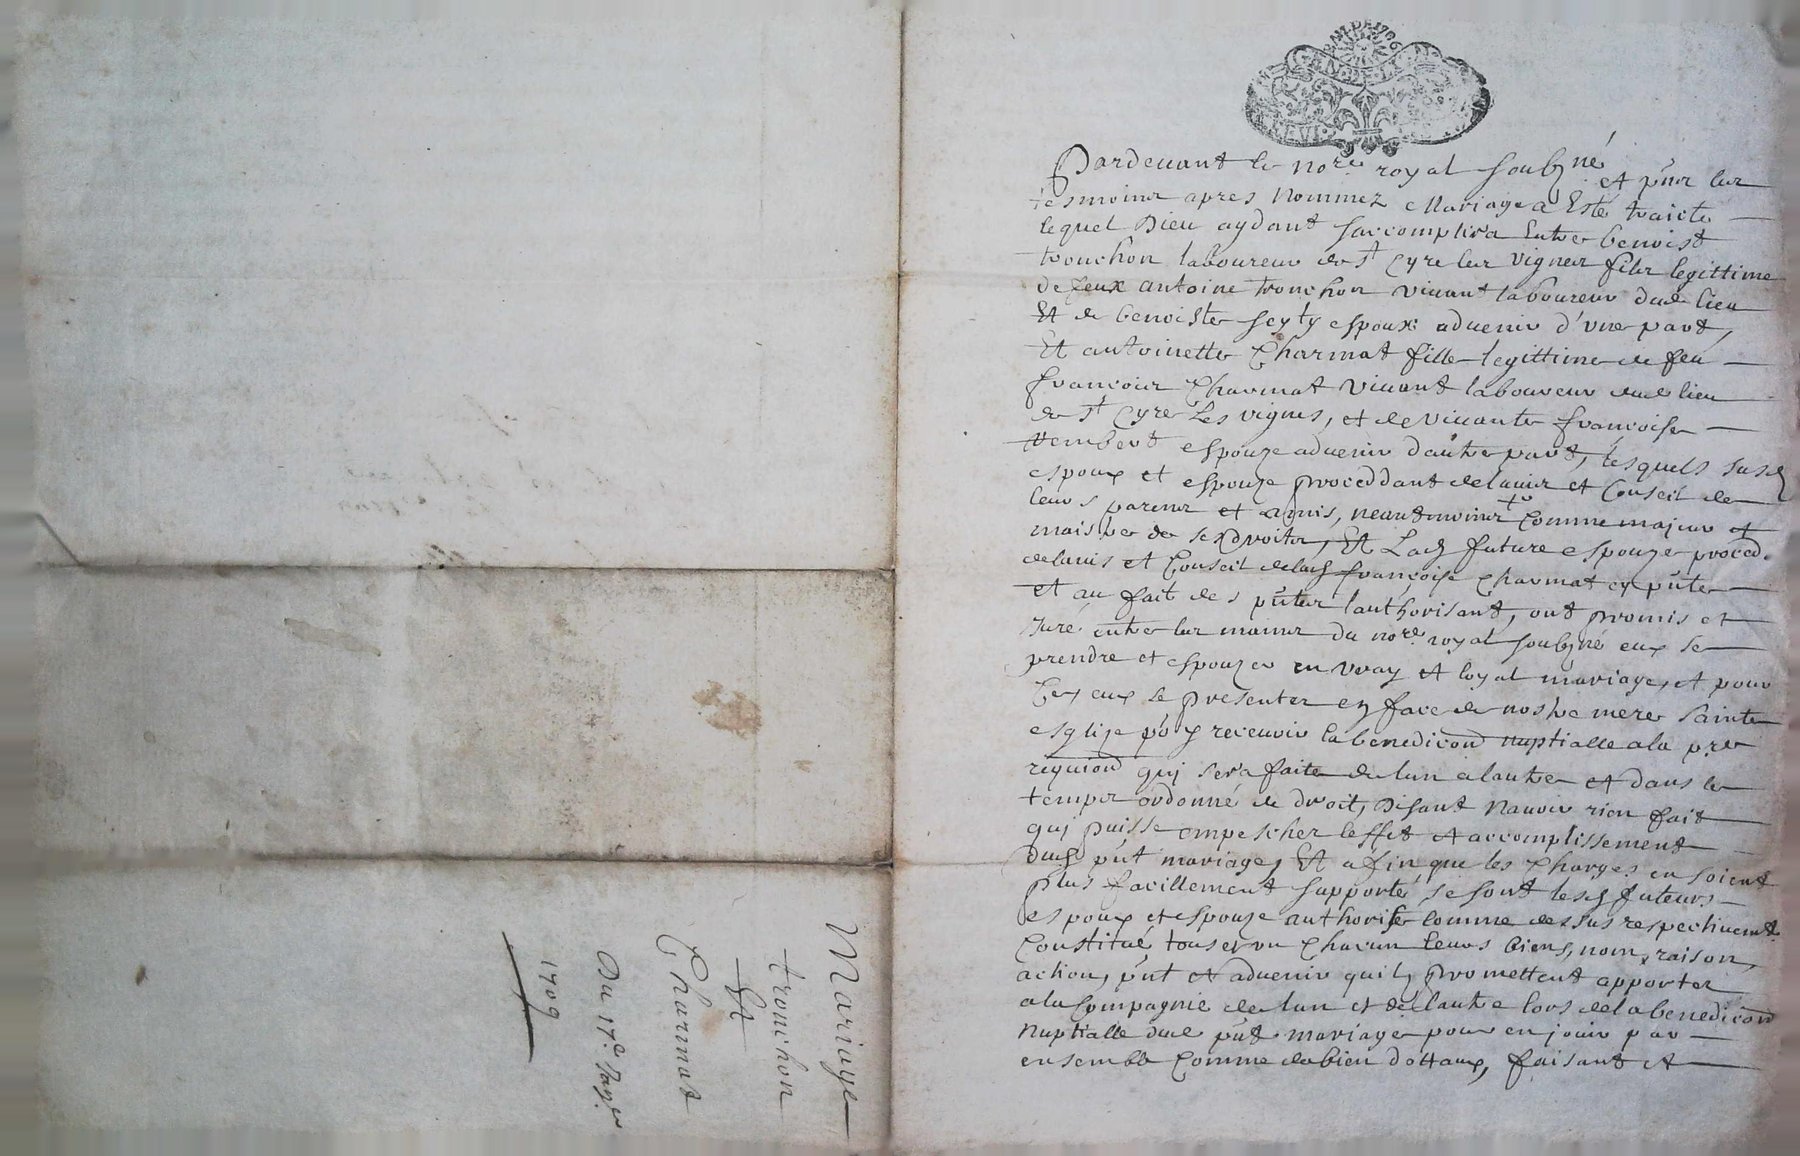 GEN DE LYON
Pardevant le no.re royal soubz.né et p'nts les
tesmoins apres nommez Mariage a Esté traicté
lequel Dieu aydant saccomplira Entre benoist
tronchon laboureur de s.t Cyre les vignes filz legittime
de feux antoine tronchon vivant laboureur dud lieu
Et de benoiste seyty espoux advenir d'une part,
Et antoinette Charmat fille legittime de feu
francois Charmat vivant laboureur dud lieu
de s.t Cyre Les vignes, et de vivante francoise
espouze advenir dautre part, lesquels susd
espoux et espouze proceddant de lavis et Conseil de
leurs parens et amis, neantmoins Comme majeur et
maistre de ses droits, Et Lad future espouze proced.
de lavis et Conseil de lad françoise Charmat cy p'nte
et au fait des p'ntes lauthorisant, ont promis et
Juré entre les mains du no.re royal soubz.né eux se
prendre et espouzer en vray et loyal mariage, et pour
Cey eux se presenter en face de nostre mere sainte
esglize po.r y recevoir la benediction nuptialle a la p.re
requiōn quj sera faite de lun a lautre et dans le
temps ordonné de droit, Disant Navoir rien fait
quj puisse empescher leffet et accomplissement
dud p'nt mariage, Et afin que les Charges en soient
plus facillement supporté, se sont lesd futeurs
espoux et espouze authorisée comme dessus respectivem.t
Constitué tous et un Chacun leurs biens, nom, raison,
action, p'nt et advenir quilz promettent apporter
a la Compagnie de lun et de lautre lors de la benediction
Nuptialle dud p'nt mariage pour en jouir par
ensemble Comme de bien dottaux, faisant et
Mariage
tronchon
Et
Charmat
Du 17.e Janv.er
1709